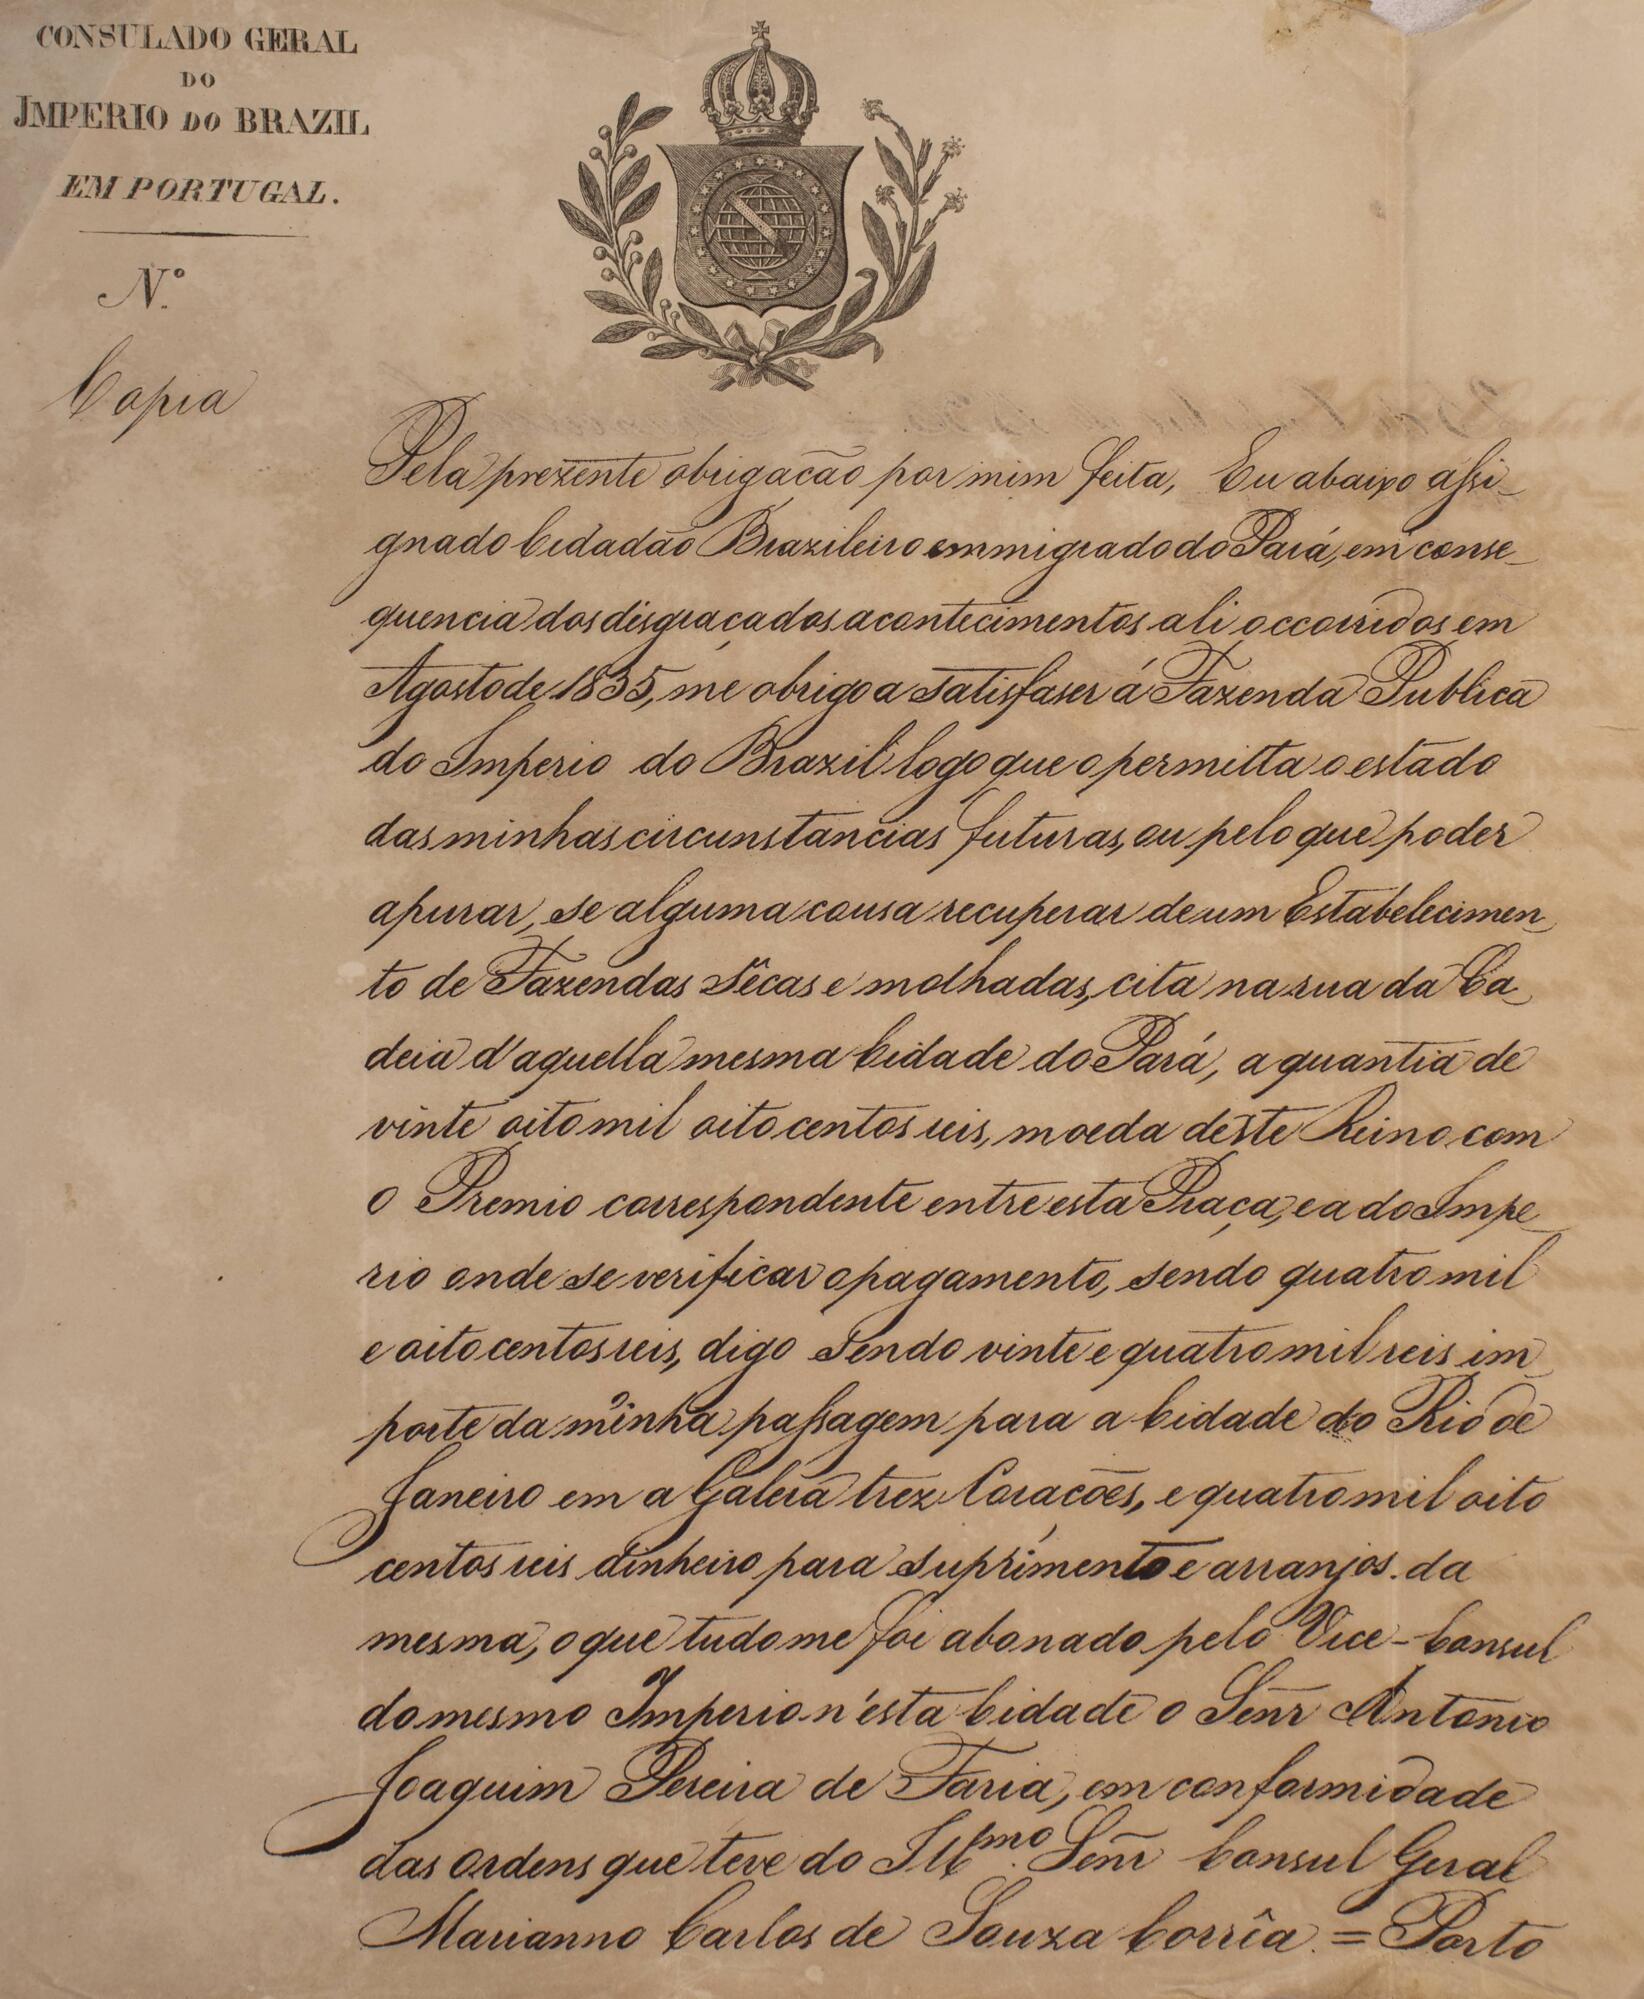 CONSULADO GERAL
DO
JMPERIO DO BRAZIL
EM PORTUGAL.
N.º
Copia
Pela prezente obrigacão por mim feita, Eu abaixo assi-
gnado Cidadão Brazileiro emmigrado do Pará, em conse-
quencia dos disgraçados acontecimentos ali occorridos em
Agosto de 1835, me obrigo a satisfaser á Fazenda Publica
do Imperio do Brazil logo que o permitta o estado
das minhas circunstancias futuras, ou pelo que poder
apurar, se alguma cousa recuperar de um Estabelecimen-
to de Fazendas Sêcas e molhadas, cita na rua da Ca-
deia d'aquella mesma Cidade do Pará, a quantia de
vinte oito mil oito centos reis, moeda deste Reino com
o Premio correspondente entre esta Praça, e a do Impe-
rio onde se verificar o pagamento, sendo quatro mil
e oito centos reis, digo sendo vinte e quatro mil reis im-
porte da minha passagem para a Cidade do Rio de
Janeiro em a Galera trez Coracões, e quatro mil oito
centos reis dinheiro para suprimento e arranjos da
mesma, o que tudo me foi abonado pelo Vice-Consul
do mesmo Imperio n'esta Cidade o Senr Antonio
Joaquim Pereira de Faria, em conformidade
das ordens que teve do Illmo. Senr Consul Geral
Marianno Carlos de Souza Corrêa. = Porto